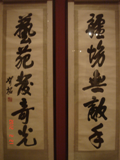 疆場無敵手
藝苑發奇光